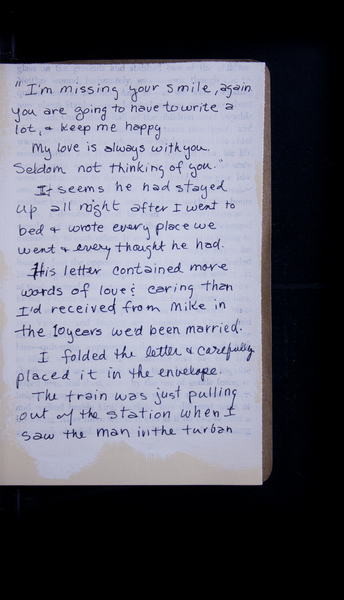 "I'm missing your smile, again
you are going to have to write a
lot, & keep me happy
My love is always with you.
Seldom not thinking of you."
It seems he had stayed
up all night after I went to
bed & wrote every place we
went & every thought he had.
His letter contained more
words of love & caring than
I'd received from Mike in
the 10 years we'd been married.
I folded the letter & carefully
placed it in the envelope.
The train was just pulling
out of the station when I
saw the man in the turban